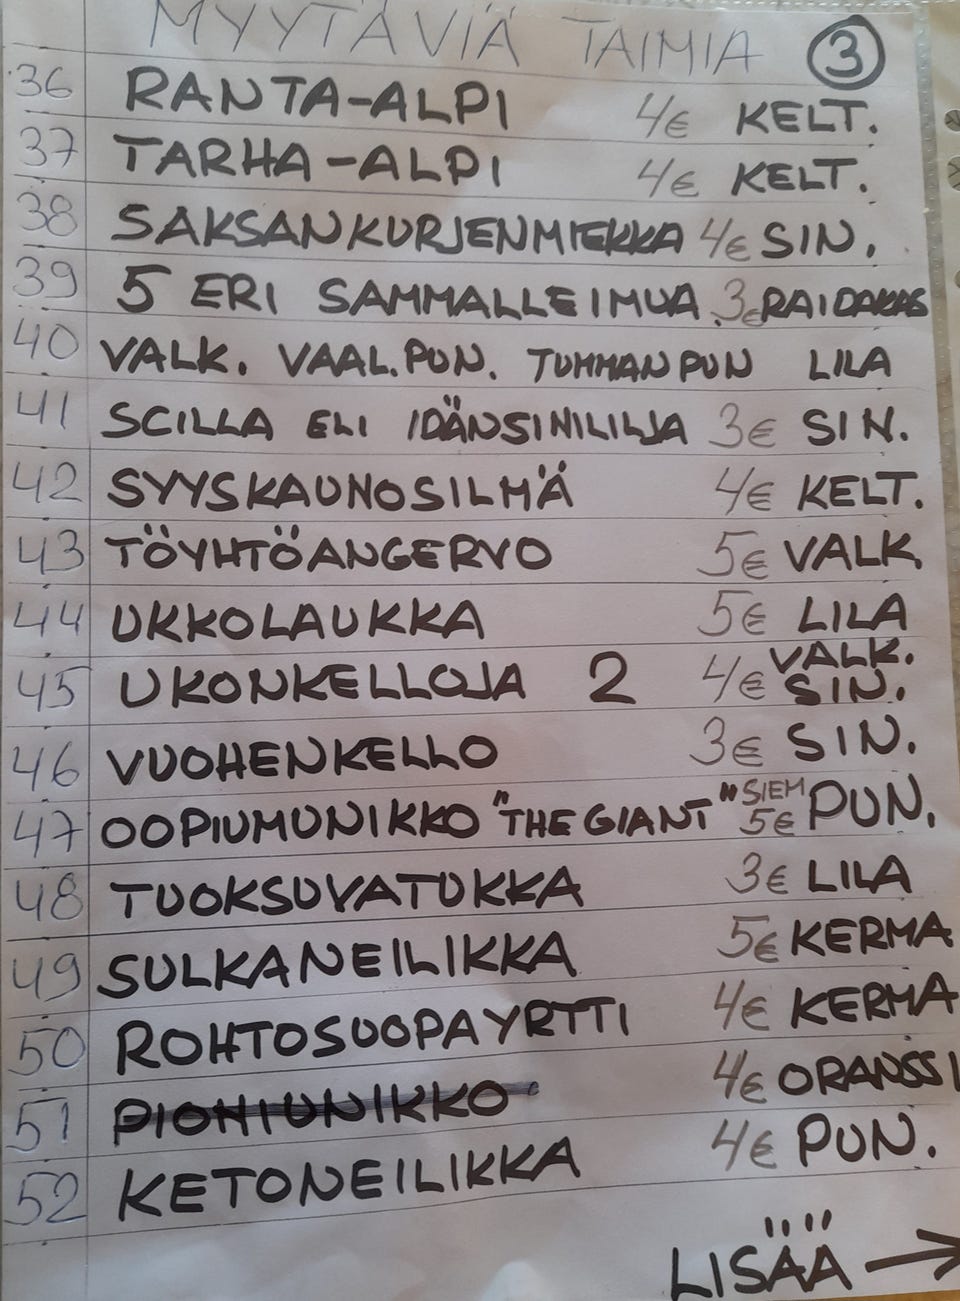 MYYTÄVIÄ TAIMIA 3
36 RANTA-ALPI 4€ KELT.
37 TARHA-ALPI 4€ KELT.
38 SAKSANKURJENMIEKKA 4€ SIN.
39 5 ERI SAMMALLEIMUA 3€ RAIDAKAS
40 VALK. VAAL.PUN. TUMMANPUN LILA
41 SCILLA ELI IDÄNSINILILJA 3€ SIN.
42 SYYSKAUNOSILMÄ 4€ KELT.
43 TÖYHTÖANGERVO 5€ VALK
44 UKKOLAUKKA 5€ LILA
45 UKONKELLOJA 2 4€ VALK. SIN.
46 VUOHENKELLO 3€ SIN.
47 OOPIUMUNIKKO "THE GIANT" SIEM 5€ PUN.
48 TUOKSUVATUKKA 3€ LILA
49 SULKANEILIKKA 5€ KERMA
50 ROHTOSUOPAYRTTI 4€ KERMA
51 PIONIUNIKKO 4€ ORANSSI
52 KETONEILIKKA 4€ PUN.
LISÄÄ →